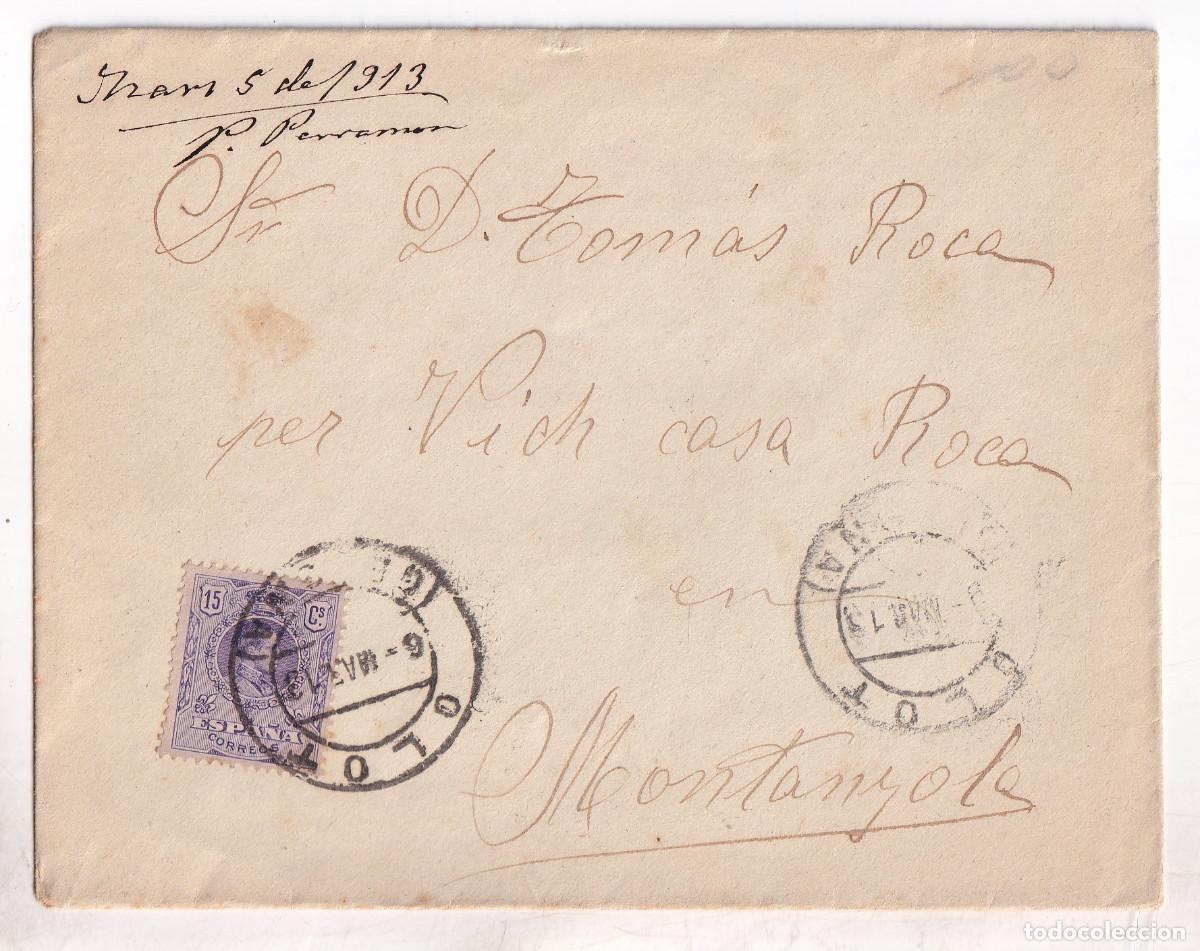 Mars 5 de 1913
P. Perramon
100
Sr D. Tomás Roca
per Vich casa Roca
en
Montanyola
15 Cs
ESPAÑA
CORREOS
OLOT
(GE NA)
6 - MAR 13
OLOT
NA)
- MAR 13
todocoleccion